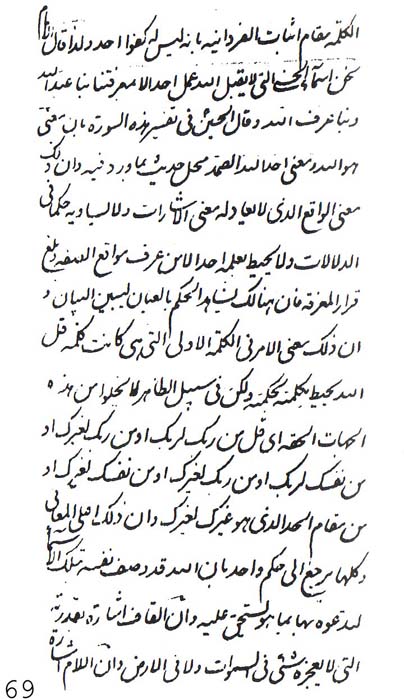 الكلمة مقام اثبات الفردانية بانه ليس له كفوا احد ولذا قال الامام
نحن اسماء الله الحسنى التي لا يقبل الله عمل احد الا بمعرفتنا بنا عبد الله
وبنا عرف الله وقال الحسين في تفسير هذه السورة بان معنى
هو الله ومعنى احد الله الصمد محل حديث بما ورد فيه وان ذلك
معنى الواقع الذي لا يعادله معنى الاشارات ولا يساويه حكما في
الدلالات ولا يحيط بعلمه احد الا من عرف مواقع الصفة وبلغ
قرار المعرفة فان هنالك ليشاهد الحكم بالعيان لسبيل البيان و
ان ذلك معنى الامر في الكلمة الاولى التي هي كانت كلمة قل
الله يحيط بكلمته بحكمه ولكن في سبيل الظاهر لا يخلوا من هذه
الجهات الحقة اي قل من ربك لربك او من ربك لغيرك او
من نفسك لربك او من ربك لغيرك او من نفسك لغيرك او
من مقام الحد الذي هو غيرك لغيرك وان ذلك المعاني
وكلها يرجع الى حكم واحد بان الله قد وصف نفسه بتلك الاسماء
لتدعوه بها بما هو يستحق عليه وان القاف اشارة بقدرته
التي لا يعجزه شيء في السموات ولا في الارض وان اللام اشارة
69